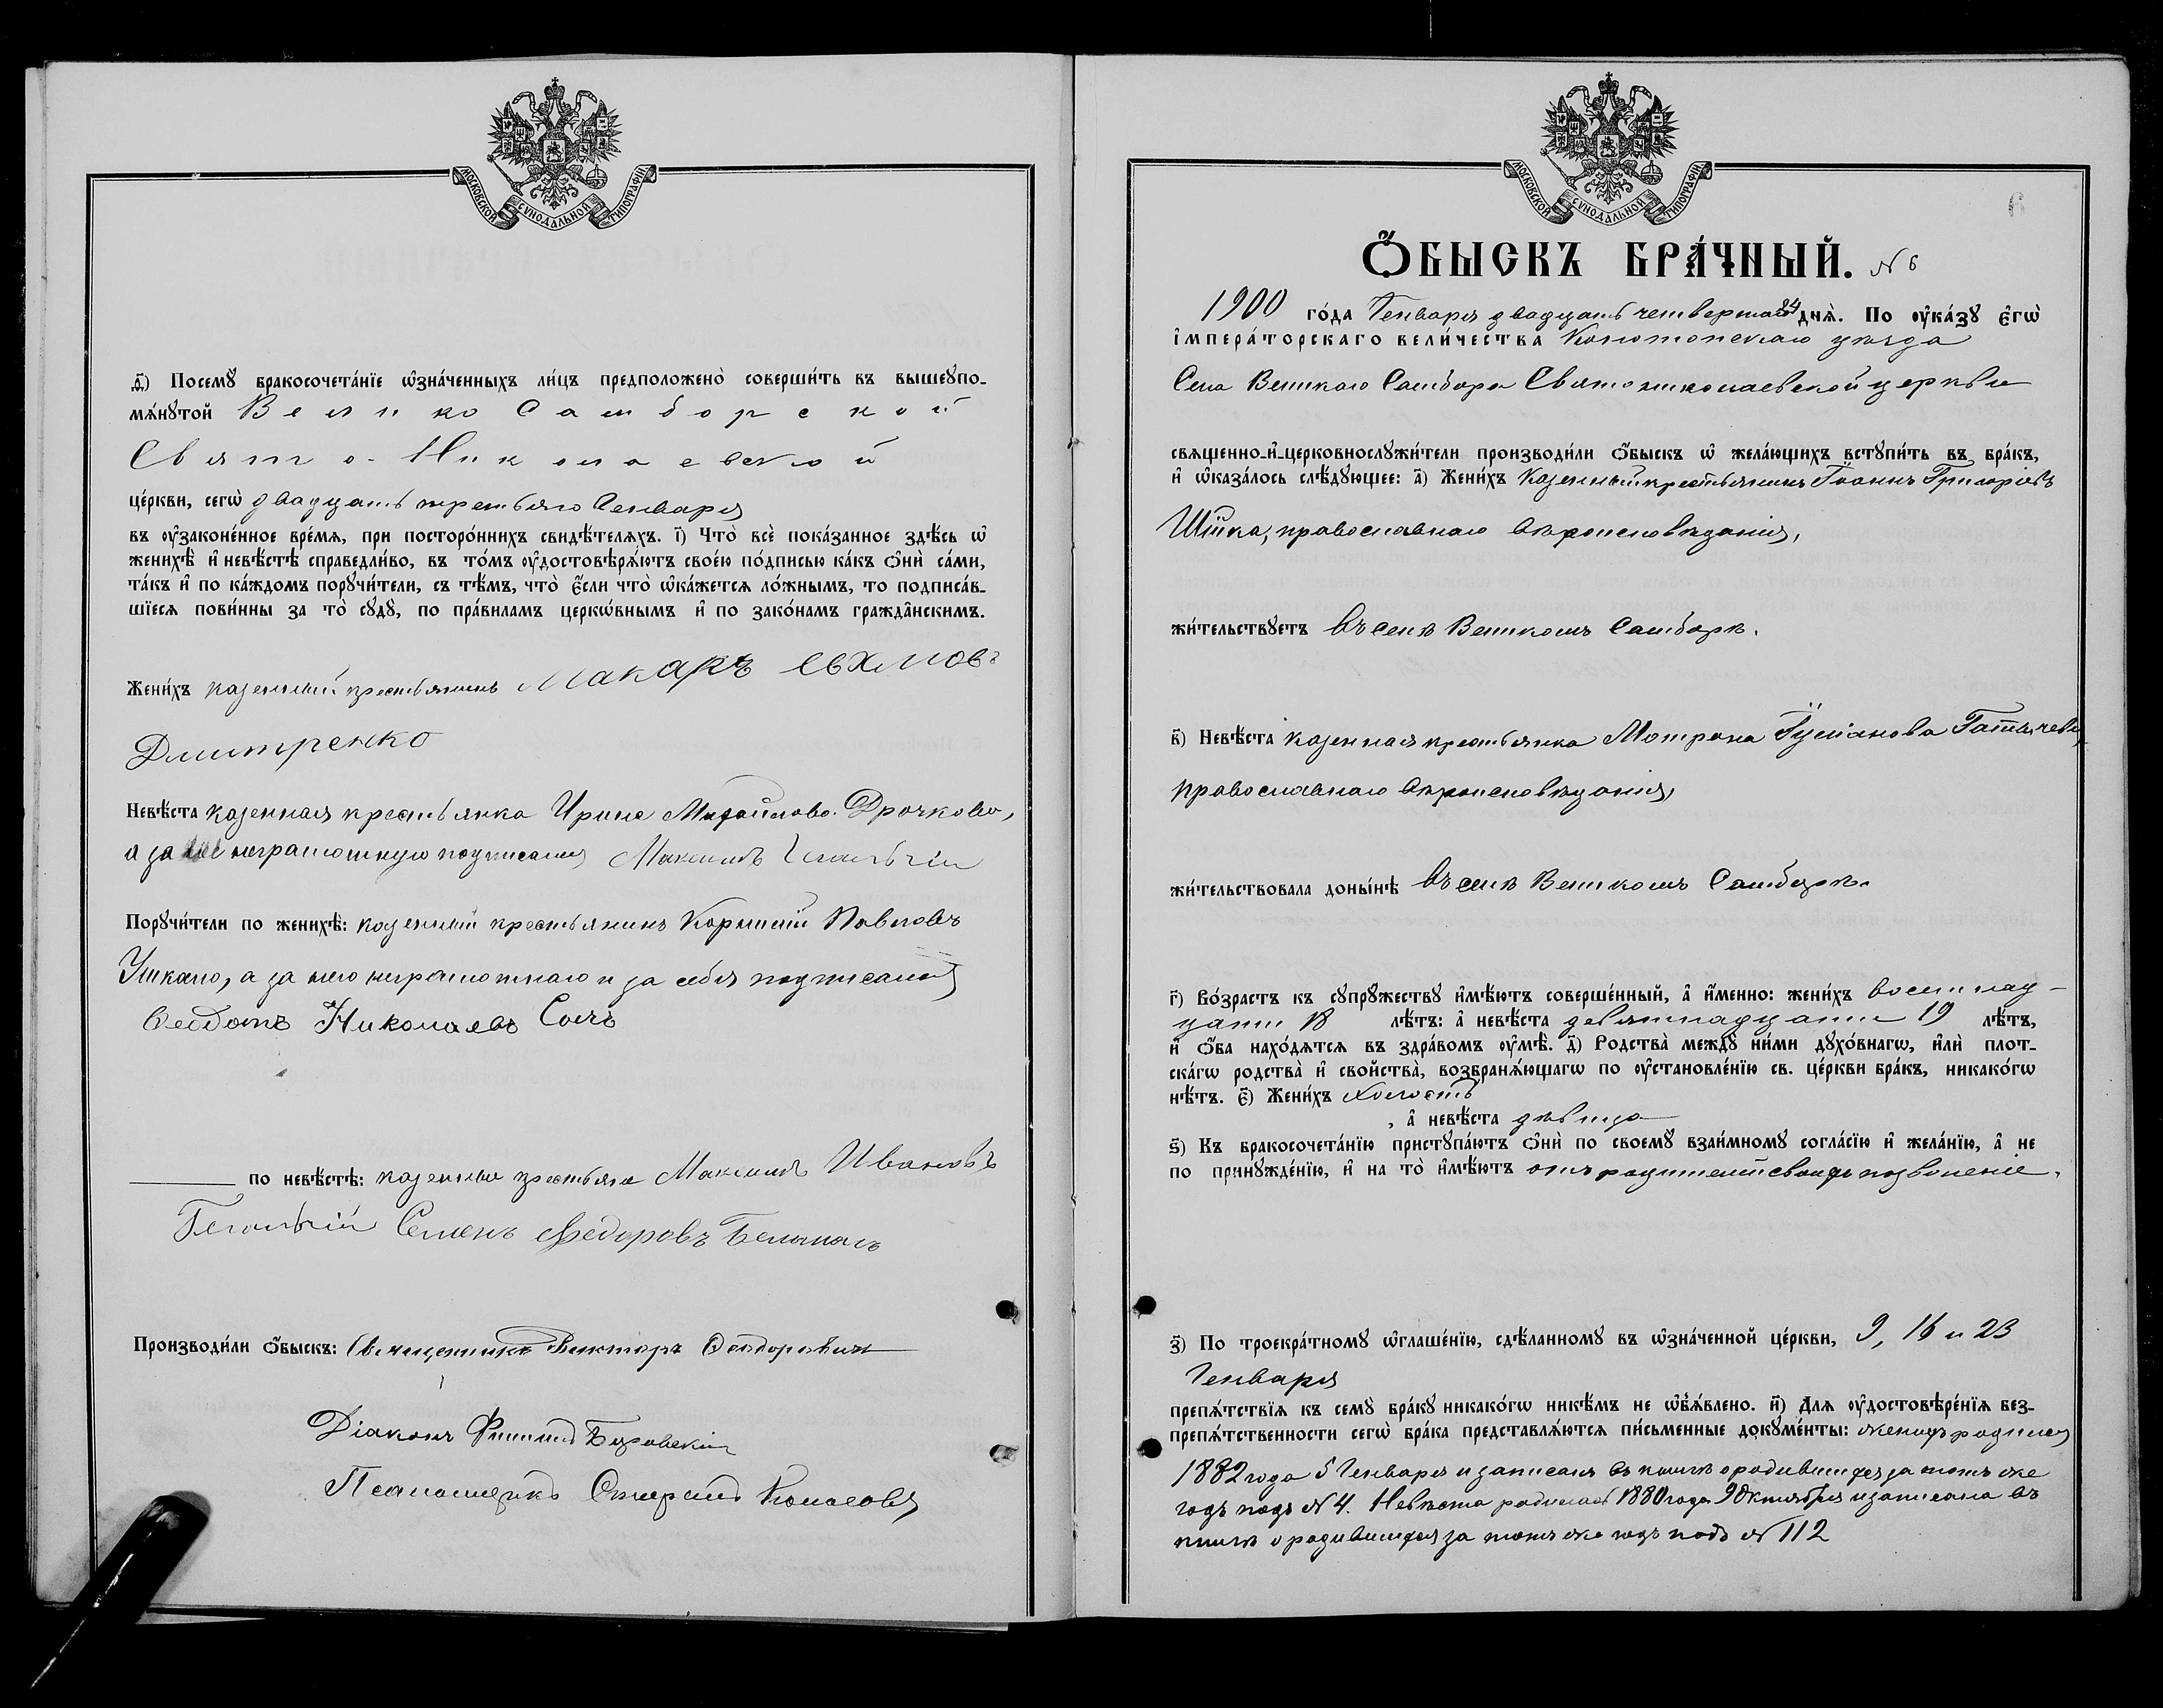 МОСКОВСКОЙ СѴНОДАЛЬНОЙ ТИПОГРАФІИ
ѳ҃) Посемꙋ̀ бракосочета́нїе ѡ҆зна́ченныхъ ли́цъ предположено̀ соверши́ть въ вышеꙋпо-
мѧ́нꙋтой Велико Самборской
Свято-Николаевской
це́ркви, сегѡ̀ двадцать третьяго Генваря
въ ᲂу҆зако́ненное вре́мѧ, при посторо́ннихъ свидѣ́телѧхъ. і҃) Что̀ всѐ пока́занное здѣ́сь ѡ҆
женихѣ̀ и҆ невѣ́стѣ справедли́во, въ то́мъ ᲂу҆достовѣрѧ́ютъ свое́ю по́дписью ка́къ ѻ҆нѝ са́ми,
та́къ и҆ по ка́ждомъ порꙋчи́тели, съ тѣ́мъ, что̀ є҆́сли что̀ ѡ҆ка́жетсѧ ло́жнымъ, то подписа́в-
шїесѧ пови́нны за то̀ сꙋдꙋ̀, по пра́виламъ церкѡ́внымъ и҆ по зако́намъ гражда̂нскимъ.
Жени́хъ казенный крестьянинъ Макаръ Евхимовъ
Дмитренко
Невѣ́ста казенная крестьянка Ирина Михайлова Дрочкова,
а за неграмотную подписался Максимъ
Порꙋчи́тели по женихѣ̀: казенный крестьянинъ Корнилій Павловъ
а за него неграмотнаго и за себя подписался
Ѳеодотъ Николаевъ Сачъ
по невѣ́стѣ: казенные крестьяне Максимъ Ивановъ
Семенъ Федоровъ
Производи́ли ѻ҆́быскъ: Священникъ Викторъ Ѳеодоровичъ
Діаконъ Филиппъ
Псаломщикъ Спиридонъ
6
МОСКОВСКОЙ СѴНОДАЛЬНОЙ ТИПОГРАФІИ
Ѻ҆́БЫСКЪ БРА́ЧНЫЙ. № 6
1900 го́да Генваря двадцать четвертаго 24 днѧ̀. По ᲂу҆ка́зꙋ є҆гѡ̀
і҆мпера́торскаго вели́чества Конотопскаго уѣзда
Села Великаго Самбора Святониколаевской церкви
свѧще́нно-и҆-церковнослꙋжи́тели производи́ли ѻ҆́быскъ ѡ҆ жела́ющихъ встꙋпи́ть въ бра́къ,
и҆ ѡ҆каза́лось слѣ́дꙋющее: а҃) Жени́хъ Казенный крестьянинъ Іоаннъ Григоріевъ
Шійка, православнаго вѣроисповѣданія,
жи́тельствꙋетъ въ селѣ Великомъ Самборѣ.
в҃) Невѣ́ста казенная крестьянка Мотрона Іуліанова
православнаго вѣроисповѣданія,
жи́тельствовала доны́нѣ въ селѣ Великомъ Самборѣ.
г҃) Во́зрастъ къ сꙋпрꙋ́жествꙋ и҆мѣ́ютъ соверше́нный, а҆ и҆́менно: жени́хъ восемнад-
цати 18 лѣ́тъ: а҆ невѣ́ста девятнадцати 19 лѣ́тъ,
и҆ ѻ҆́ба нахо́дѧтсѧ въ здра́вомъ ᲂу҆мѣ̀. д҃) Родства̀ междꙋ̀ ни́ми дꙋхо́внагѡ, и҆лѝ плот-
ска́гѡ родства̀ и҆ сво́йства̀, возбранѧ́ющагѡ по ᲂу҆становле́нїю св. це́ркви бра́къ, никако́гѡ
нѣ́тъ. є҃) Жени́хъ холостъ
, а҆ невѣ́ста дѣвица
ѕ҃) Къ бракосочета́нїю пристꙋпа́ютъ ѻ҆нѝ по своемꙋ̀ взаи́мномꙋ согла́сїю и҆ жела́нїю, а҆ не
по принꙋжде́нїю, и҆ на то̀ и҆мѣ́ютъ отъ родителей своихъ позволеніе.
з҃) По троекра́тномꙋ ѡ҆глаше́нїю, сдѣ́ланномꙋ въ ѡ҆зна́ченной це́ркви, 9, 16 и 23
Генваря
препѧ́тствїѧ къ семꙋ̀ бра́кꙋ никако́гѡ никѣ́мъ не ѡ҆б̾ѧ́влено. и҃) Длѧ ᲂу҆достовѣре́нїѧ без-
препѧ́тственности сегѡ̀ бра́ка представлѧ́ютсѧ пи́сьменные докꙋме́нты: женихъ родился
1882 года 5 Генваря и записанъ въ книгѣ о родившихся за тотъ же
годъ подъ № 4. Невѣста родилась 1880 года 9 Октября и записана въ
книгѣ о родившихся за тотъ же годъ подъ № 112